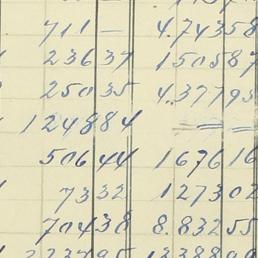 711 — 4.743 58
236 37 1505 87
250 35 4.377 95
1248 84 ==
506 44 1676 16
73 32 1273 02
704 38 8.832 55